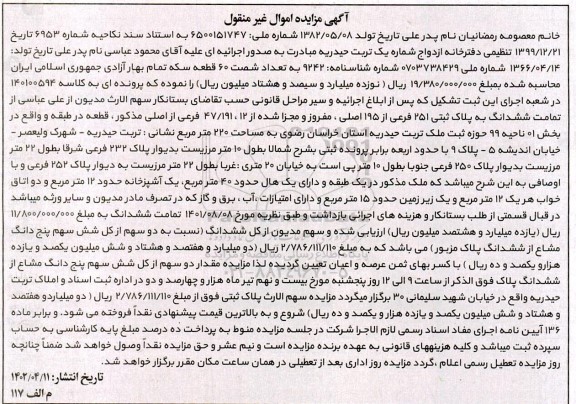 آگهی مزایده اموال غیر منقول
خانم معصومه رمضانیان نام پدر علی تاریخ تولد ۱۳۸۲/۰۵/۰۸ شماره ملی: ۶۵۰۰۱۵۱۷۴۷ به استناد سند نکاحیه شماره ۶۹۵۳ تاریخ
۱۳۹۹/۱۲/۲۱ تنظیمی دفترخانه ازدواج شماره یک تربت حیدریه مبادرت به صدور اجرائیه ای علیه آقای محمود عباسی نام پدر علی تاریخ تولد:
۱۳۶۶/۰۴/۱۴ شماره ملی ۰۷۰۳۷۳۸۴۲۹ شماره شناسنامه: ۹۲۴۲ به تعداد شصت ۶۰ قطعه سکه تمام بهار آزادی جمهوری اسلامی ایران
محاسبه شده بمبلغ ۱۹/۳۸۰/۰۰۰/۰۰۰ ریال (نوزده میلیارد و سیصد و هشتاد میلیون ریال) را نموده که پرونده ای به کلاسه ۱۴۰۱۰۰۵۹۴
در شعبه اجرای این ثبت تشکیل که پس از ابلاغ اجرائیه و سیر مراحل قانونی حسب تقاضای بستانکار سهم الارث مدیون از علی عباسی از
تمامت ششدانگ به پلاک ثبتی ۲۵۱ فرعی از ۱۹۵ اصلی، مفروز و مجزا شده از ۱۲، ۴۷/۱۹۱ فرعی از اصلی مذکور، قطعه در طبقه و واقع در
بخش ۰۱ ناحیه ۹۹ حوزه ثبت ملک تربت حیدریه استان خراسان رضوی به مساحت ۲۲۰ متر مربع نشانی: تربت حیدریه - شهرک ولیعصر -
خیابان اندیشه ۵ - پلاک ۹ با حدود اربعه برابر پرونده ثبتی بشرح شمالا بطول ۱۰ متر مرزیست بدیوار پلاک ۲۳۲ فرعی شرقا بطول ۲۲ متر
مرزیست بدیوار پلاک ۲۵۰ فرعی جنوبا بطول ۱۰ متر پی است به خیابان ۲۰ متری: غربا بطول ۲۲ متر مرزیست به دیوار پلاک ۲۵۲ فرعی و با
اوصافی به این شرح میباشد که ملک مذکور در یک طبقه و دارای یک هال حدود ۴۰ متر مربع، یک آشپزخانه حدود ۱۲ متر مربع و دو اتاق
خواب هر یک ۱۲ متر مربع و یک زیر زمین حدود ۱۵ متر مربع و دارای امتیازات، آب، برق و گاز که در تصرف مادر مدیون و سایر ورثه میباشد
در قبال قسمتی از طلب بستانکار و هزینه های اجرائی بازداشت و طبق نظریه مورخ ۱۴۰۱/۰۸/۰۸ تمامت ششدانگ به مبلغ ۱۱/۸۰۰/۰۰۰/۰۰۰
ریال (یازده میلیارد و هشتصد میلیون ریال) ارزیابی شده و سهم مدیون از کل ششدانگ (نسبت به دو سهم از کل شش سهم پنج دانگ
مشاع از ششدانگ پلاک مزبور) می باشد که به مبلغ ۲/۷۸۶/۱۱۱/۱۱۰ ریال (دو میلیارد و هفتصد و هشتاد و شش میلیون یکصد و یازده
هزار و یکصد و ده ریال) با کسر بهای ثمن عرصه و اعیان تعیین گردیده لذا مزایده مقدار دو سهم از کل شش سهم پنج دانگ مشاع از
ششدانگ پلاک فوق الذکر از ساعت ۹ الی ۱۲ روز پنجشنبه مورخ بیست و نهم تیر ماه هزار و چهارصد و دو در اداره ثبت اسناد و املاک تربت
حیدریه واقع در خیابان شهید سلیمانی ۳۰ برگزار میگردد مزایده سهم الارث پلاک ثبتی فوق از مبلغ ۲/۷۸۶/۱۱۱/۱۱۰ ریال (دو میلیارد و هفتصد
و هشتاد و شش میلیون یکصد و یازده هزار و یکصد و ده ریال) شروع و به بالاترین قیمت پیشنهادی نقداً فروخته می شود. و برابر ماده
۱۳۶ آیین نامه اجرای مفاد اسناد رسمی لازم الاجرا شرکت در جلسه مزایده منوط به پرداخت ده درصد مبلغ پایه کارشناسی به حساب
سپرده ثبت میباشد و کلیه هزینههای قانونی به عهده برنده مزایده است و نیم عشر و حق مزایده نقداً وصول خواهد شد ضمناً چنانچه
روز مزایده تعطیل رسمی اعلام، گردد مزایده روز اداری بعد از تعطیلی در همان ساعت مکان مقرر برگزار خواهد شد.
تاریخ انتشار: ۱۴۰۲/۰۴/۱۱
م الف ۱۱۷